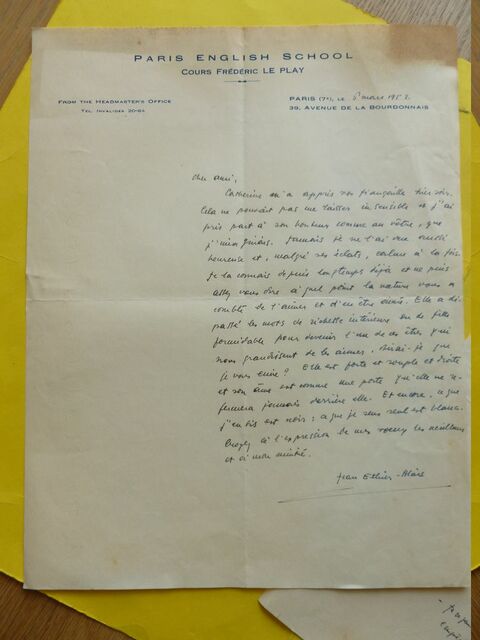 PARIS ENGLISH SCHOOL
COURS FRÉDÉRIC LE PLAY
FROM THE HEADMASTER'S OFFICE
TEL. INVALIDES 20-64
PARIS (7e), LE 6 mars 1952.
39, AVENUE DE LA BOURDONNAIS
Cher ami,
Catherine m'a appris vos fiançailles hier soir.
Cela ne pouvait pas me laisser insensible et j'ai
pris part à son bonheur comme au vôtre, que
j'imagine. Jamais je ne l'ai vue aussi
heureuse et, malgré ses éclats, calme à la fois.
Je la connais depuis longtemps déjà et ne puis
assez vous dire à quel point la nature vous a
comblé de l'aimer et d'en être aimé. Elle a dé-
passé les mots de richesse intérieure ou de fille
formidable pour devenir l'un de ces êtres qui
nous grandissent de les aimer. dirai-je que
je vous envie? Elle est forte et souple et droite
et son âme est comme une porte qu'elle ne re-
fermera jamais derrière elle. Et encore, ce que
j'en dis est noir: ce que je sens seul est blanc.
Croyez à l'expression de mes voeux les meilleurs
et à mon amitié.
Jean Ethier-Blais